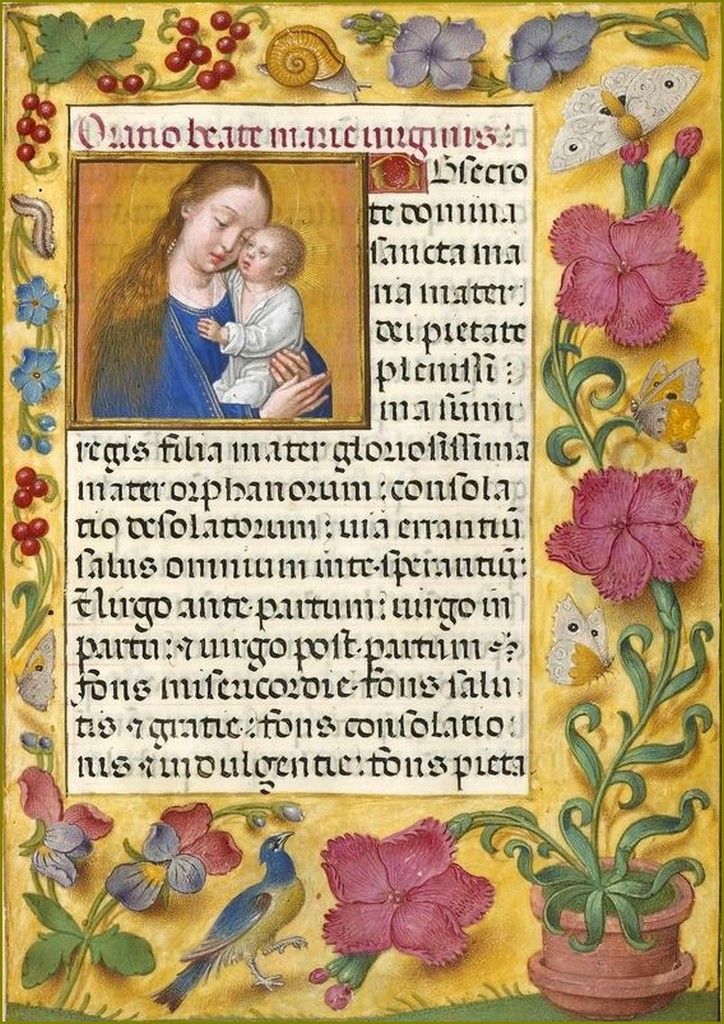 Oratio beate marie virginis:
Obsecro
te domina
sancta ma
ria mater:
dei pietate
plenissi:
ma sūmi
regis filia mater gloriosissima
mater orphanorum: consola
tio desolatorum: via errantiū
salus omnium in te·sperantiū:
Virgo ante·partum: virgo in
partu: ⁊ virgo post·partum
fons misericordie·fons salu
tis ⁊ gratie: fons consolatio:
nis ⁊ indulgentie: fons pieta